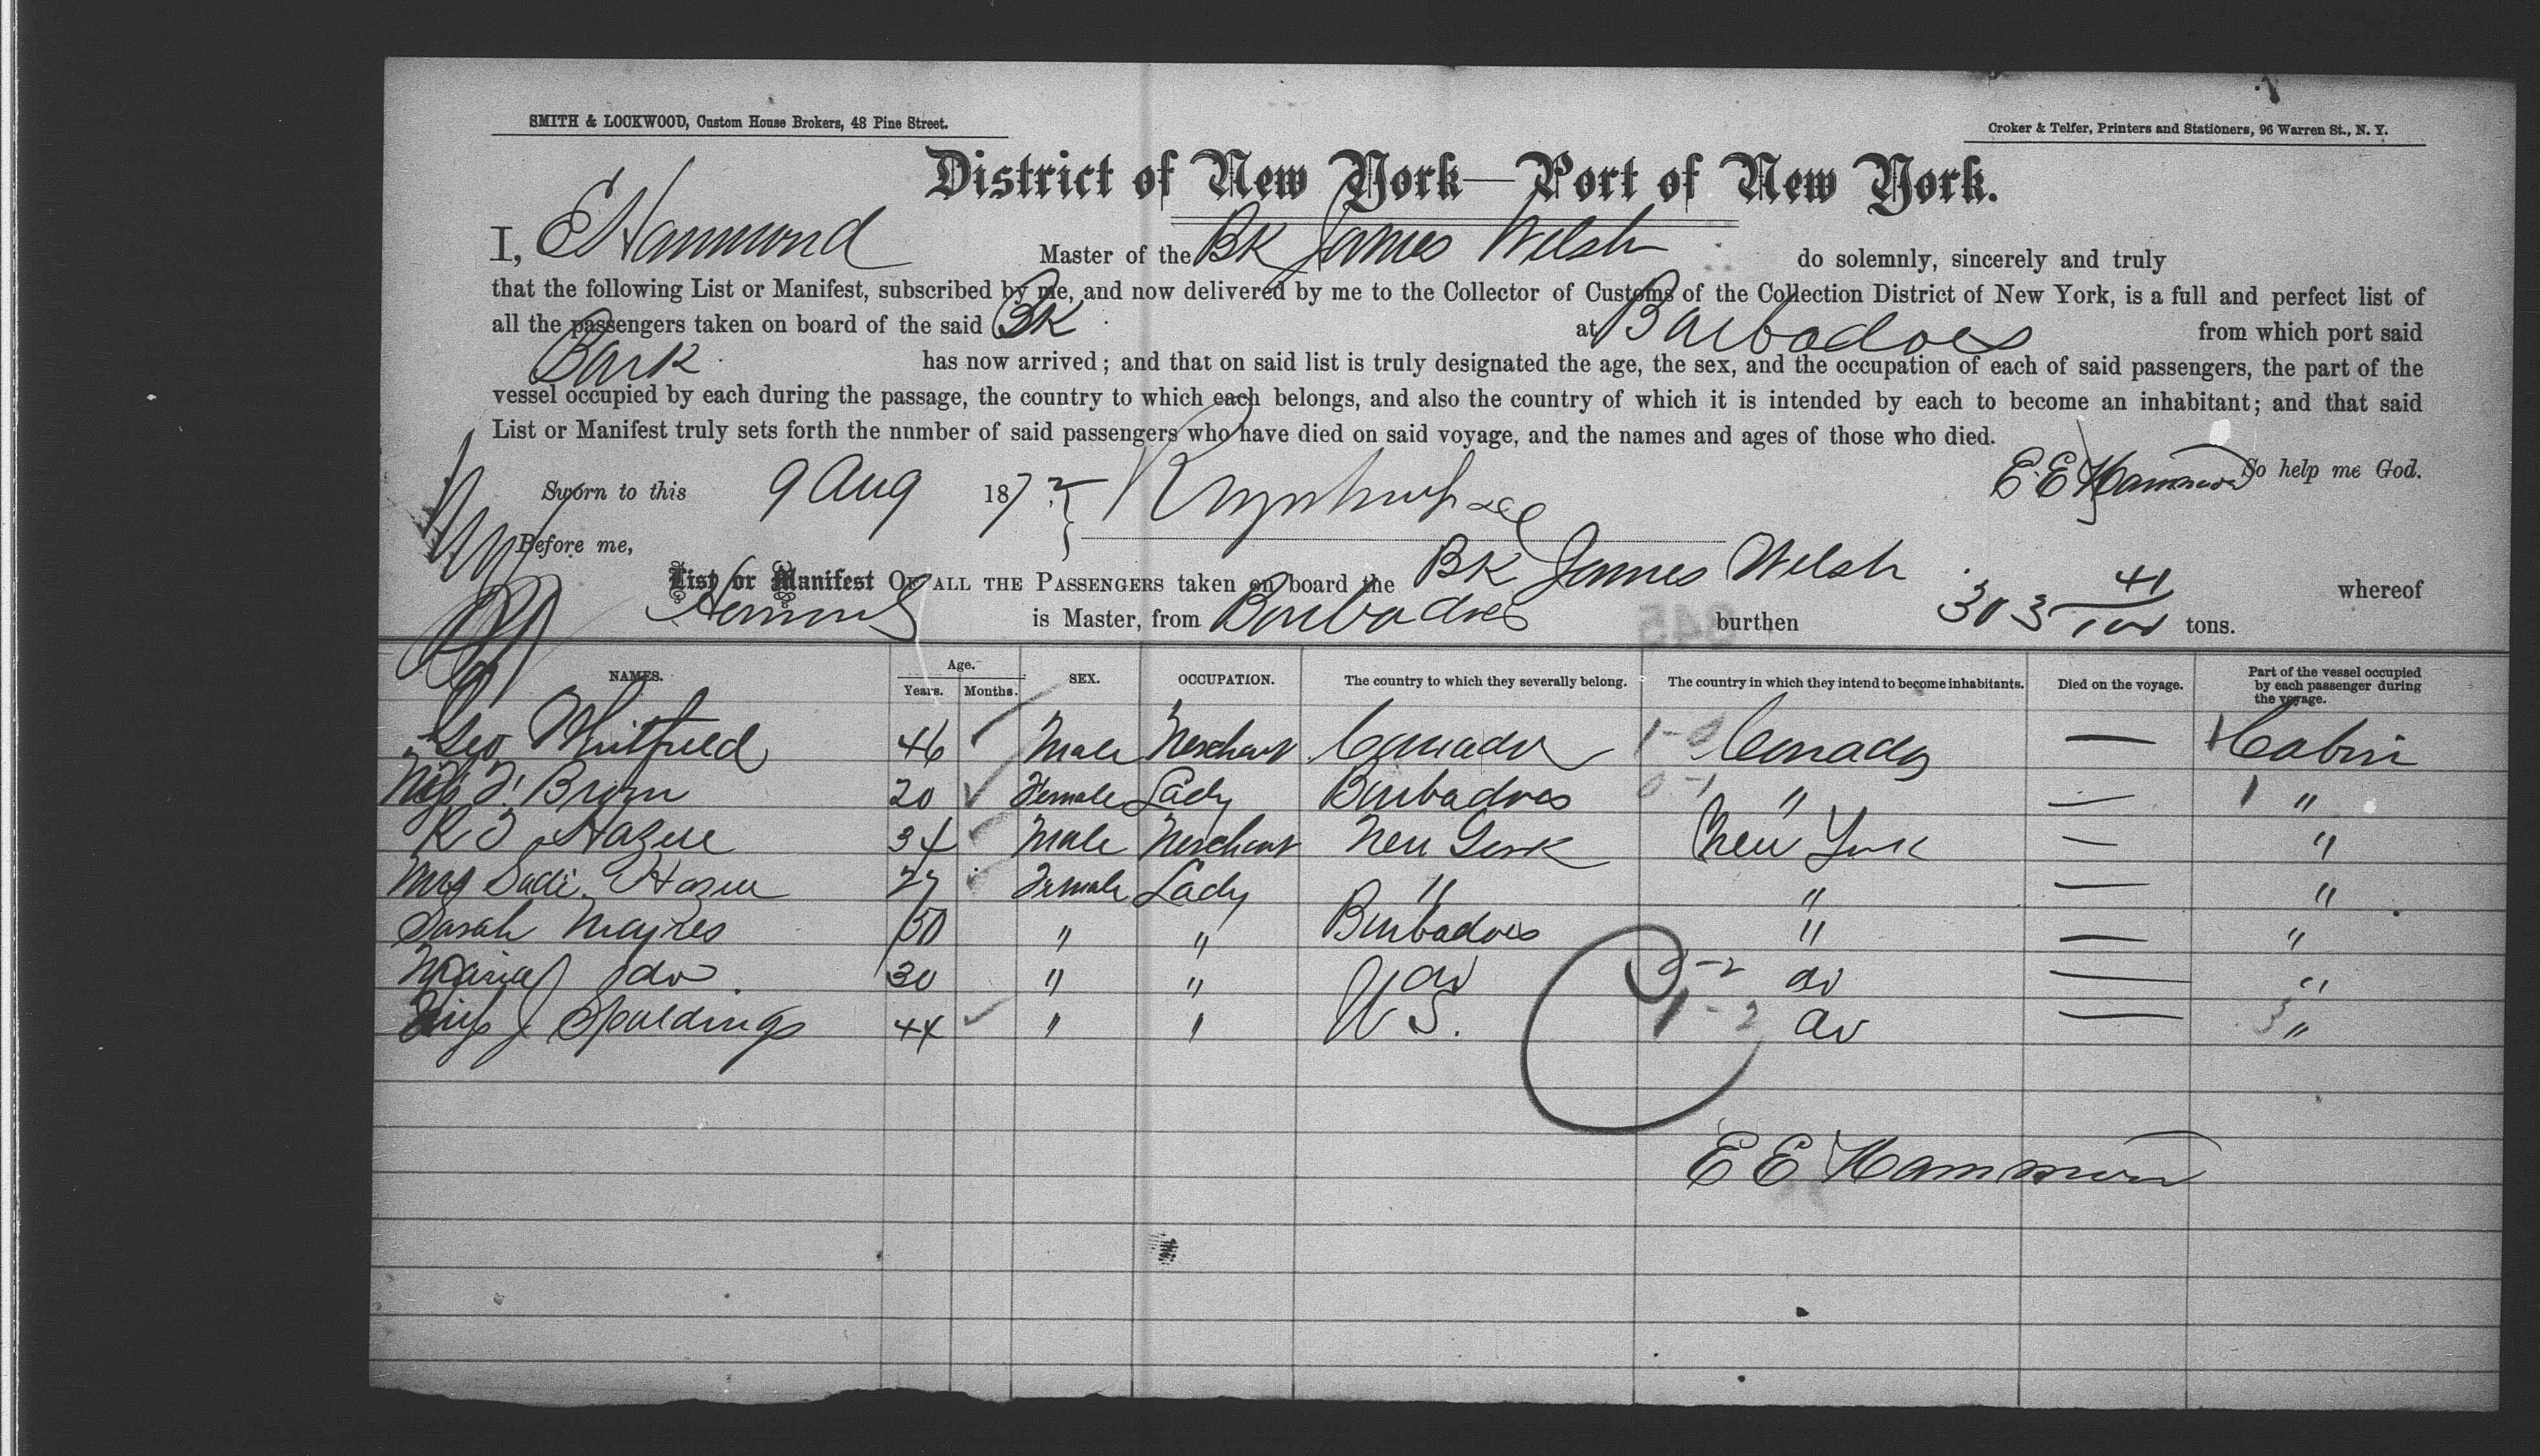 SMITH & LOCKWOOD, Custom House Brokers, 48 Pine Street.
Croker & Telfer, Printers and Stationers, 96 Warren St., N. Y.
District of New York—Port of New York.
I, E Hammond Master of the Bk James Welsh do solemnly, sincerely and truly
that the following List or Manifest, subscribed by me, and now delivered by me to the Collector of Customs of the Collection District of New York, is a full and perfect list of
all the passengers taken on board of the said Bk at Barbadoes from which port said
Bark has now arrived; and that on said list is truly designated the age, the sex, and the occupation of each of said passengers, the part of the
vessel occupied by each during the passage, the country to which each belongs, and also the country of which it is intended by each to become an inhabitant; and that said
List or Manifest truly sets forth the nnmber of said passengers who have died on said voyage, and the names and ages of those who died.
E. E Hammond So help me God.
Sworn to this 9 Aug 1872
Before me,
List or Manifest OF ALL THE PASSENGERS taken on board the Bk James Welsh whereof
Hammond is Master, from Barbadoes burthen 303 41/100 tons.
NAMES. Age. Years. Months. SEX. OCCUPATION. The country to which they severally belong. The country in which they intend to become inhabitants. Died on the voyage. Part of the vessel occupied by each passenger during the voyage.
Geo Whitfield 46 Male Merchant Canada 1-0 Canada — 1 Cabin
Miss 20 Female Lady Barbadoes 0-1 " — 1 "
34 Male Merchant New York New York — "
Mrs Sadi 27 Female Lady " " — "
Sarah 50 " " Barbadoes " — "
Maria do 30 " " do 3-2 do — "
J Spouldings 44 " " U S. 1-2 do — 3 "
E E Hammond